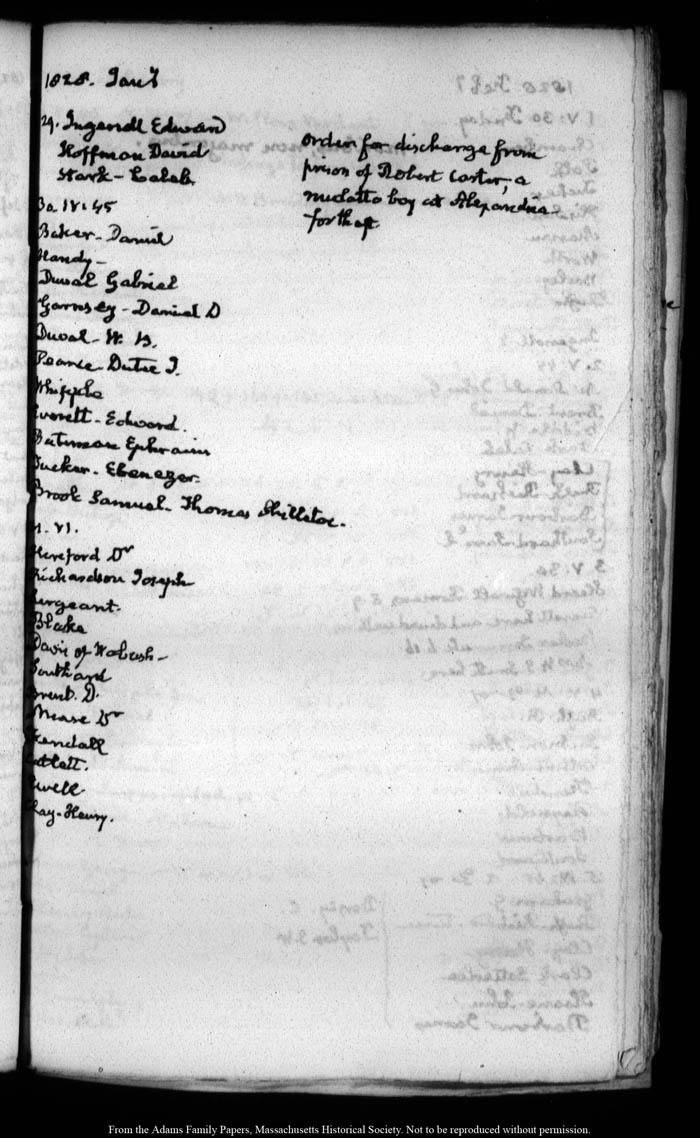 1828. Jany
29. Ingersoll Edward
Hoffman David
Stark - Caleb.
30. IV: 45
Baker - Daniel
Handy -
Duval Gabriel
Garnsey - Daniel D
Duval - W. B.
Pearce Dutee J.
Whipple
Everett - Edward.
Bateman Ephraim
Tucker - Ebenezer.
Brook Samuel - Thomas Shillitoe.
VI.
Hereford Dr
Richardson Joseph
Sergeant.
Blake
Davis of Wabash -
Southard
Brent. D.
Mease Dr
Kendall
Catlett.
Ewell
Clay - Henry.
Order for discharge from
prison of Robert Carter, a
mulatto boy at Alexandria
for theft.
From the Adams Family Papers, Massachusetts Historical Society. Not to be reproduced without permission.